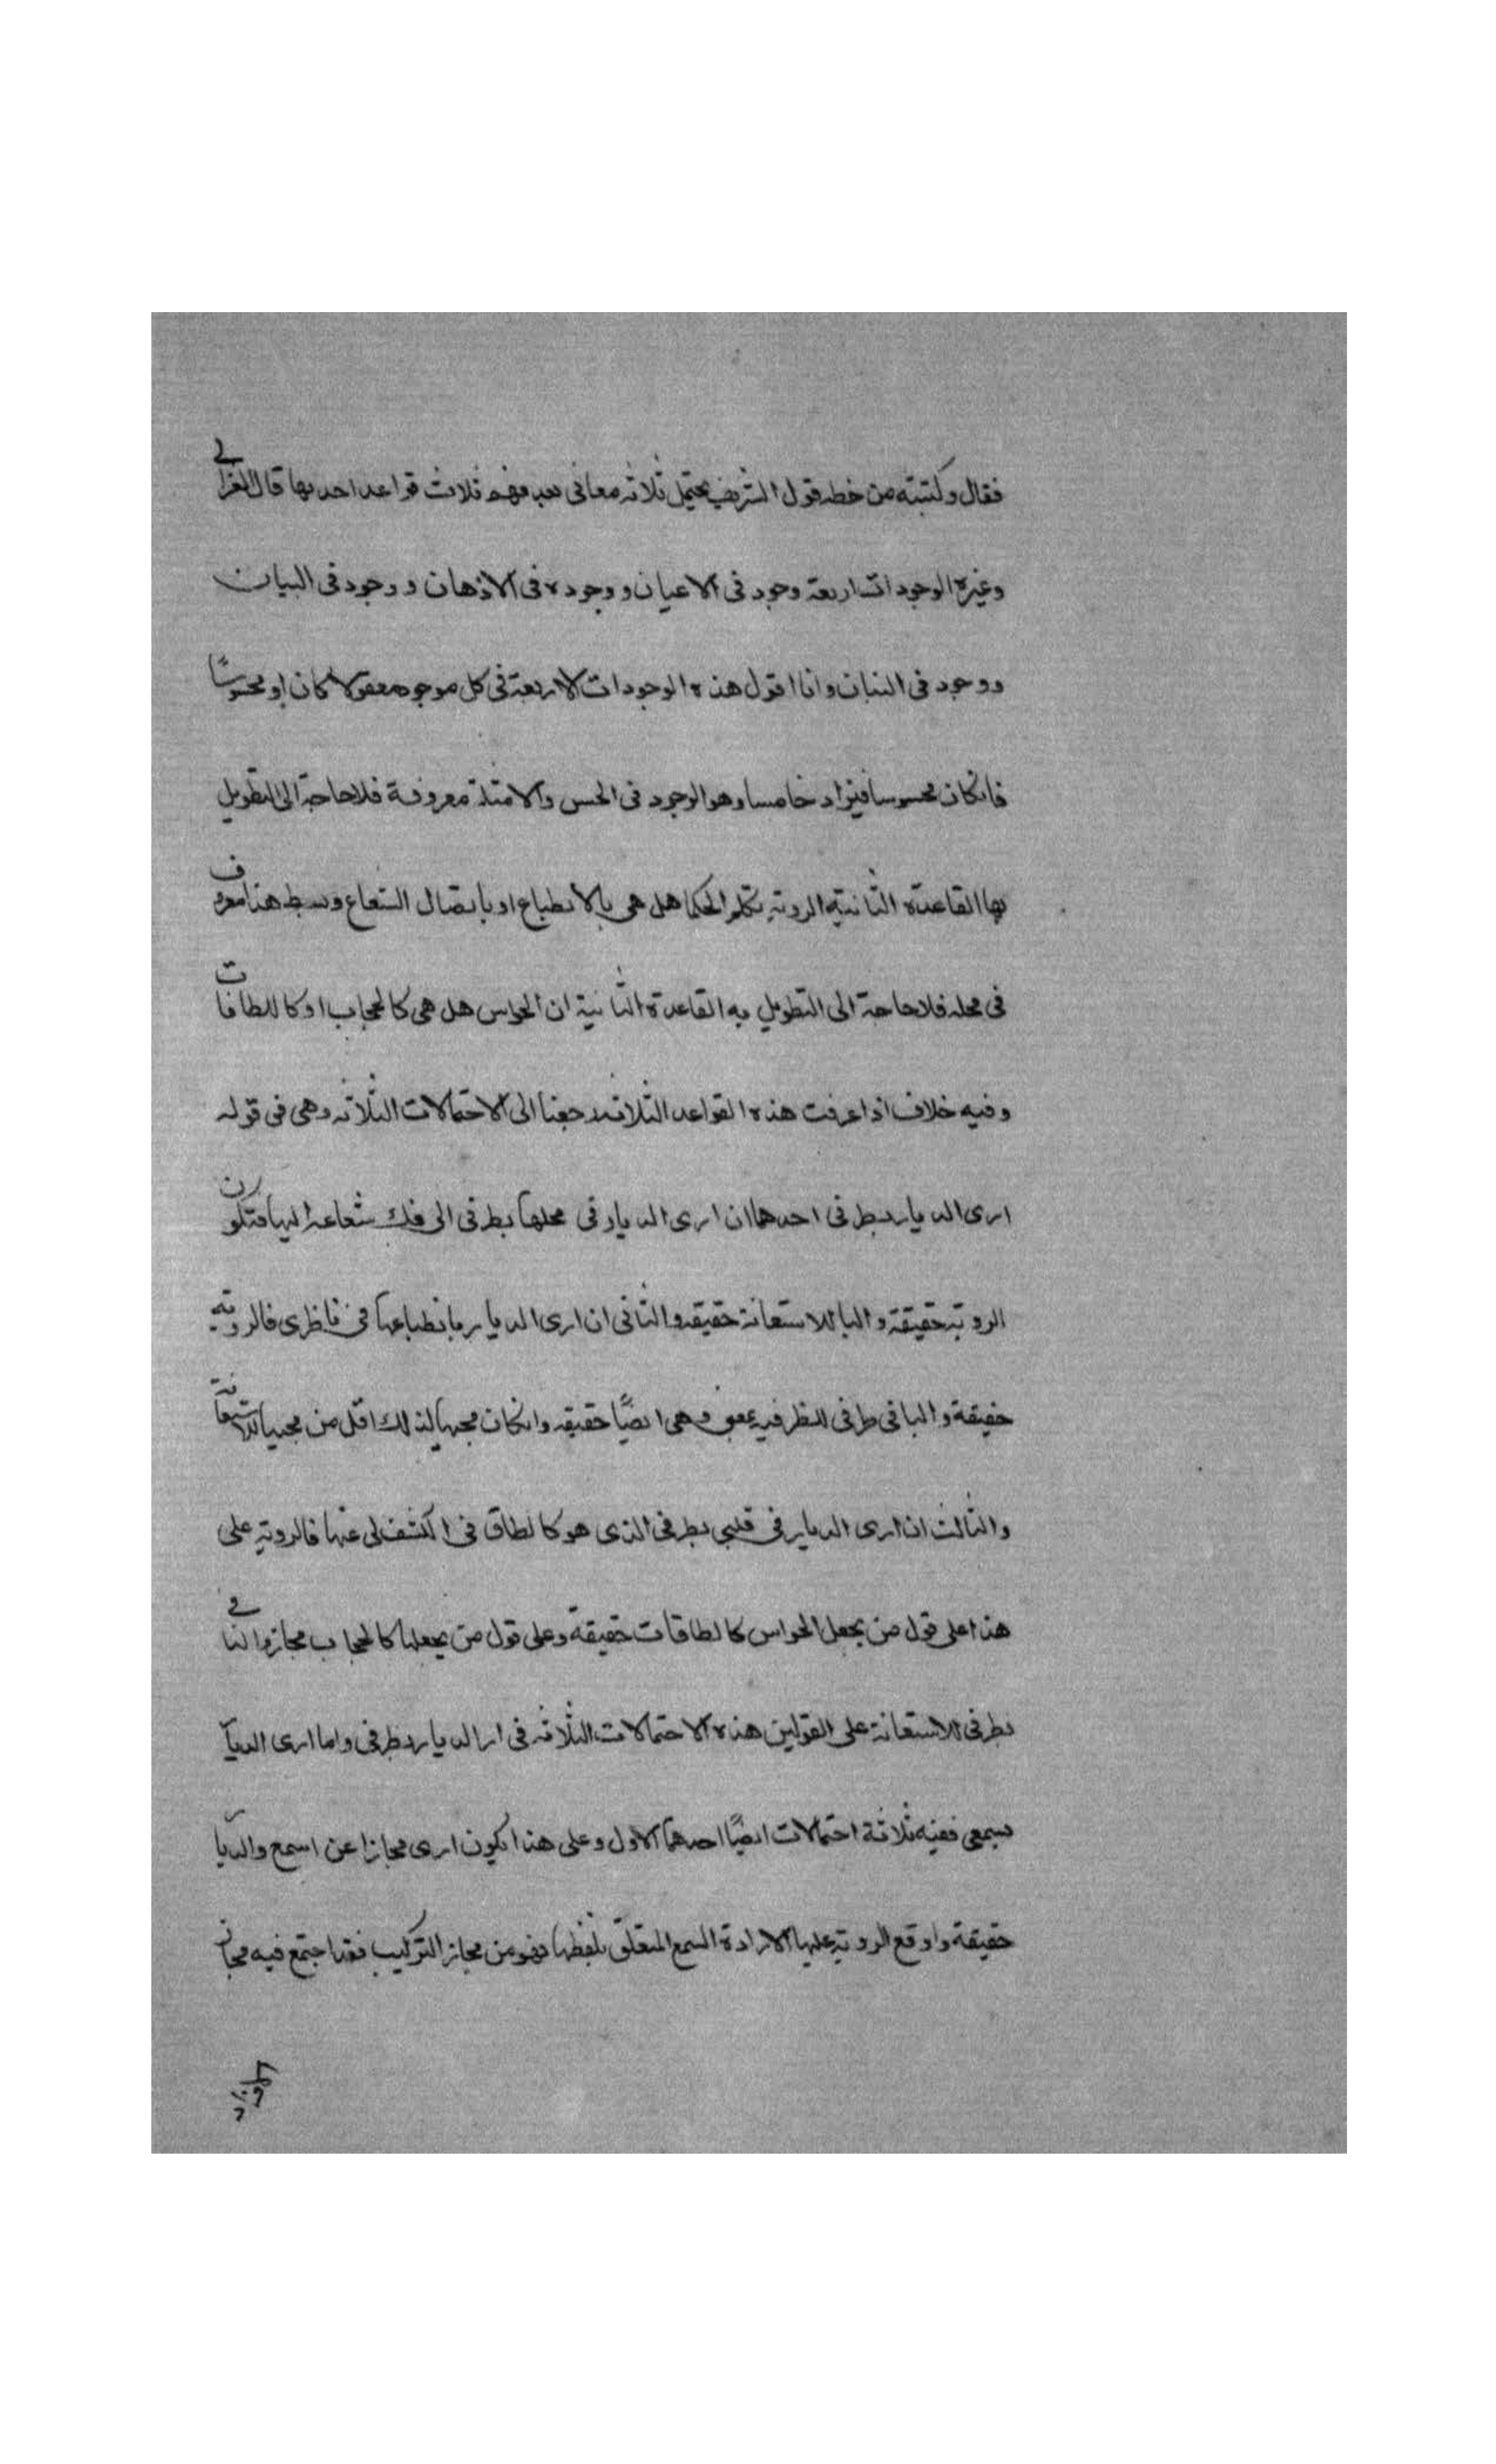 فقال وكتبته من خطه قول الشريف يحتمل ثلاثه معانى بعد فهم ثلاث قواعد احديها قال الغزالى
وغيره الوجودات اربعة وجود فى الاعيان ووجوده فى الاذهان ووجود فى البيان
ووجود فى البنان وانا اقول هذه الوجودات الاربعة فى كل موجود معقولا كان او محسوسًا
فانكان محسوسا فيزاد خامسا وهو الوجود فى الحس والامثلة معروفة فلا حاجة الى التطويل
بها القاعدة الثانية الروية تكلم الحكما هل هى بالانطباع او باتصال الشعاع وبسط هذا معروف
فى محله فلا حاجة الى التطويل به القاعدة الثانية ان الحواس هل هى كالحجاب او كالطاقات
وفيه خلاف اذا عرفت هذه القواعد الثلاثة رجعنا الى الاحتمالات الثلاثه وهى فى قوله
ارى الديار بطرفى احدها ان ارى الديار فى محلها بطرفى الى شعاعه اليها فتكون
الروية حقيقة والبا للاستعانة حقيقه والثانى ان ارى الديار بانطباعها فى ناظرى فالروية
حقيقة والبا فى طرفى للظرفيه وهى ايضًا حقيقه وانكان مجيها لذلك اقل من مجيها للاستعانة
والثالث ان ارى الديار فى قلبى بطرفى الذى هو كالطاق فى اكشف لى عنها فالروية على
هذا على قول من يجعل الحواس كالطاقات حقيقة وعلى قول من يجعلها كالحجاب مجاز والبا فى
بطرفى للاستعانة على القولين هذه الاحتمالات الثلاثه فى ارا الديار بطرفى واما ارى الديار
بسمعى ففيه ثلاثة احتمالات ايضًا احدها الاول وعلى هذا يكون ارى مجازا عن اسمع والديار
حقيقة واوقع الروية عليها لارادة السمع المتعلق بلفظها فهو من مجاز التركيب فقد اجتمع فيه مجاز